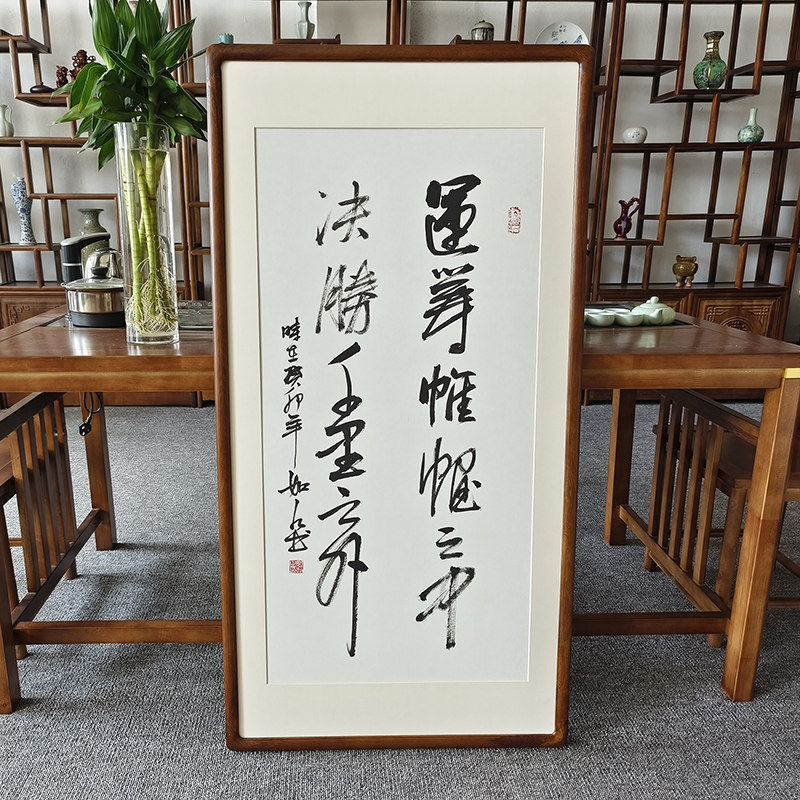 運籌帷幄之中
决勝千里之外
時在癸卯年如石書